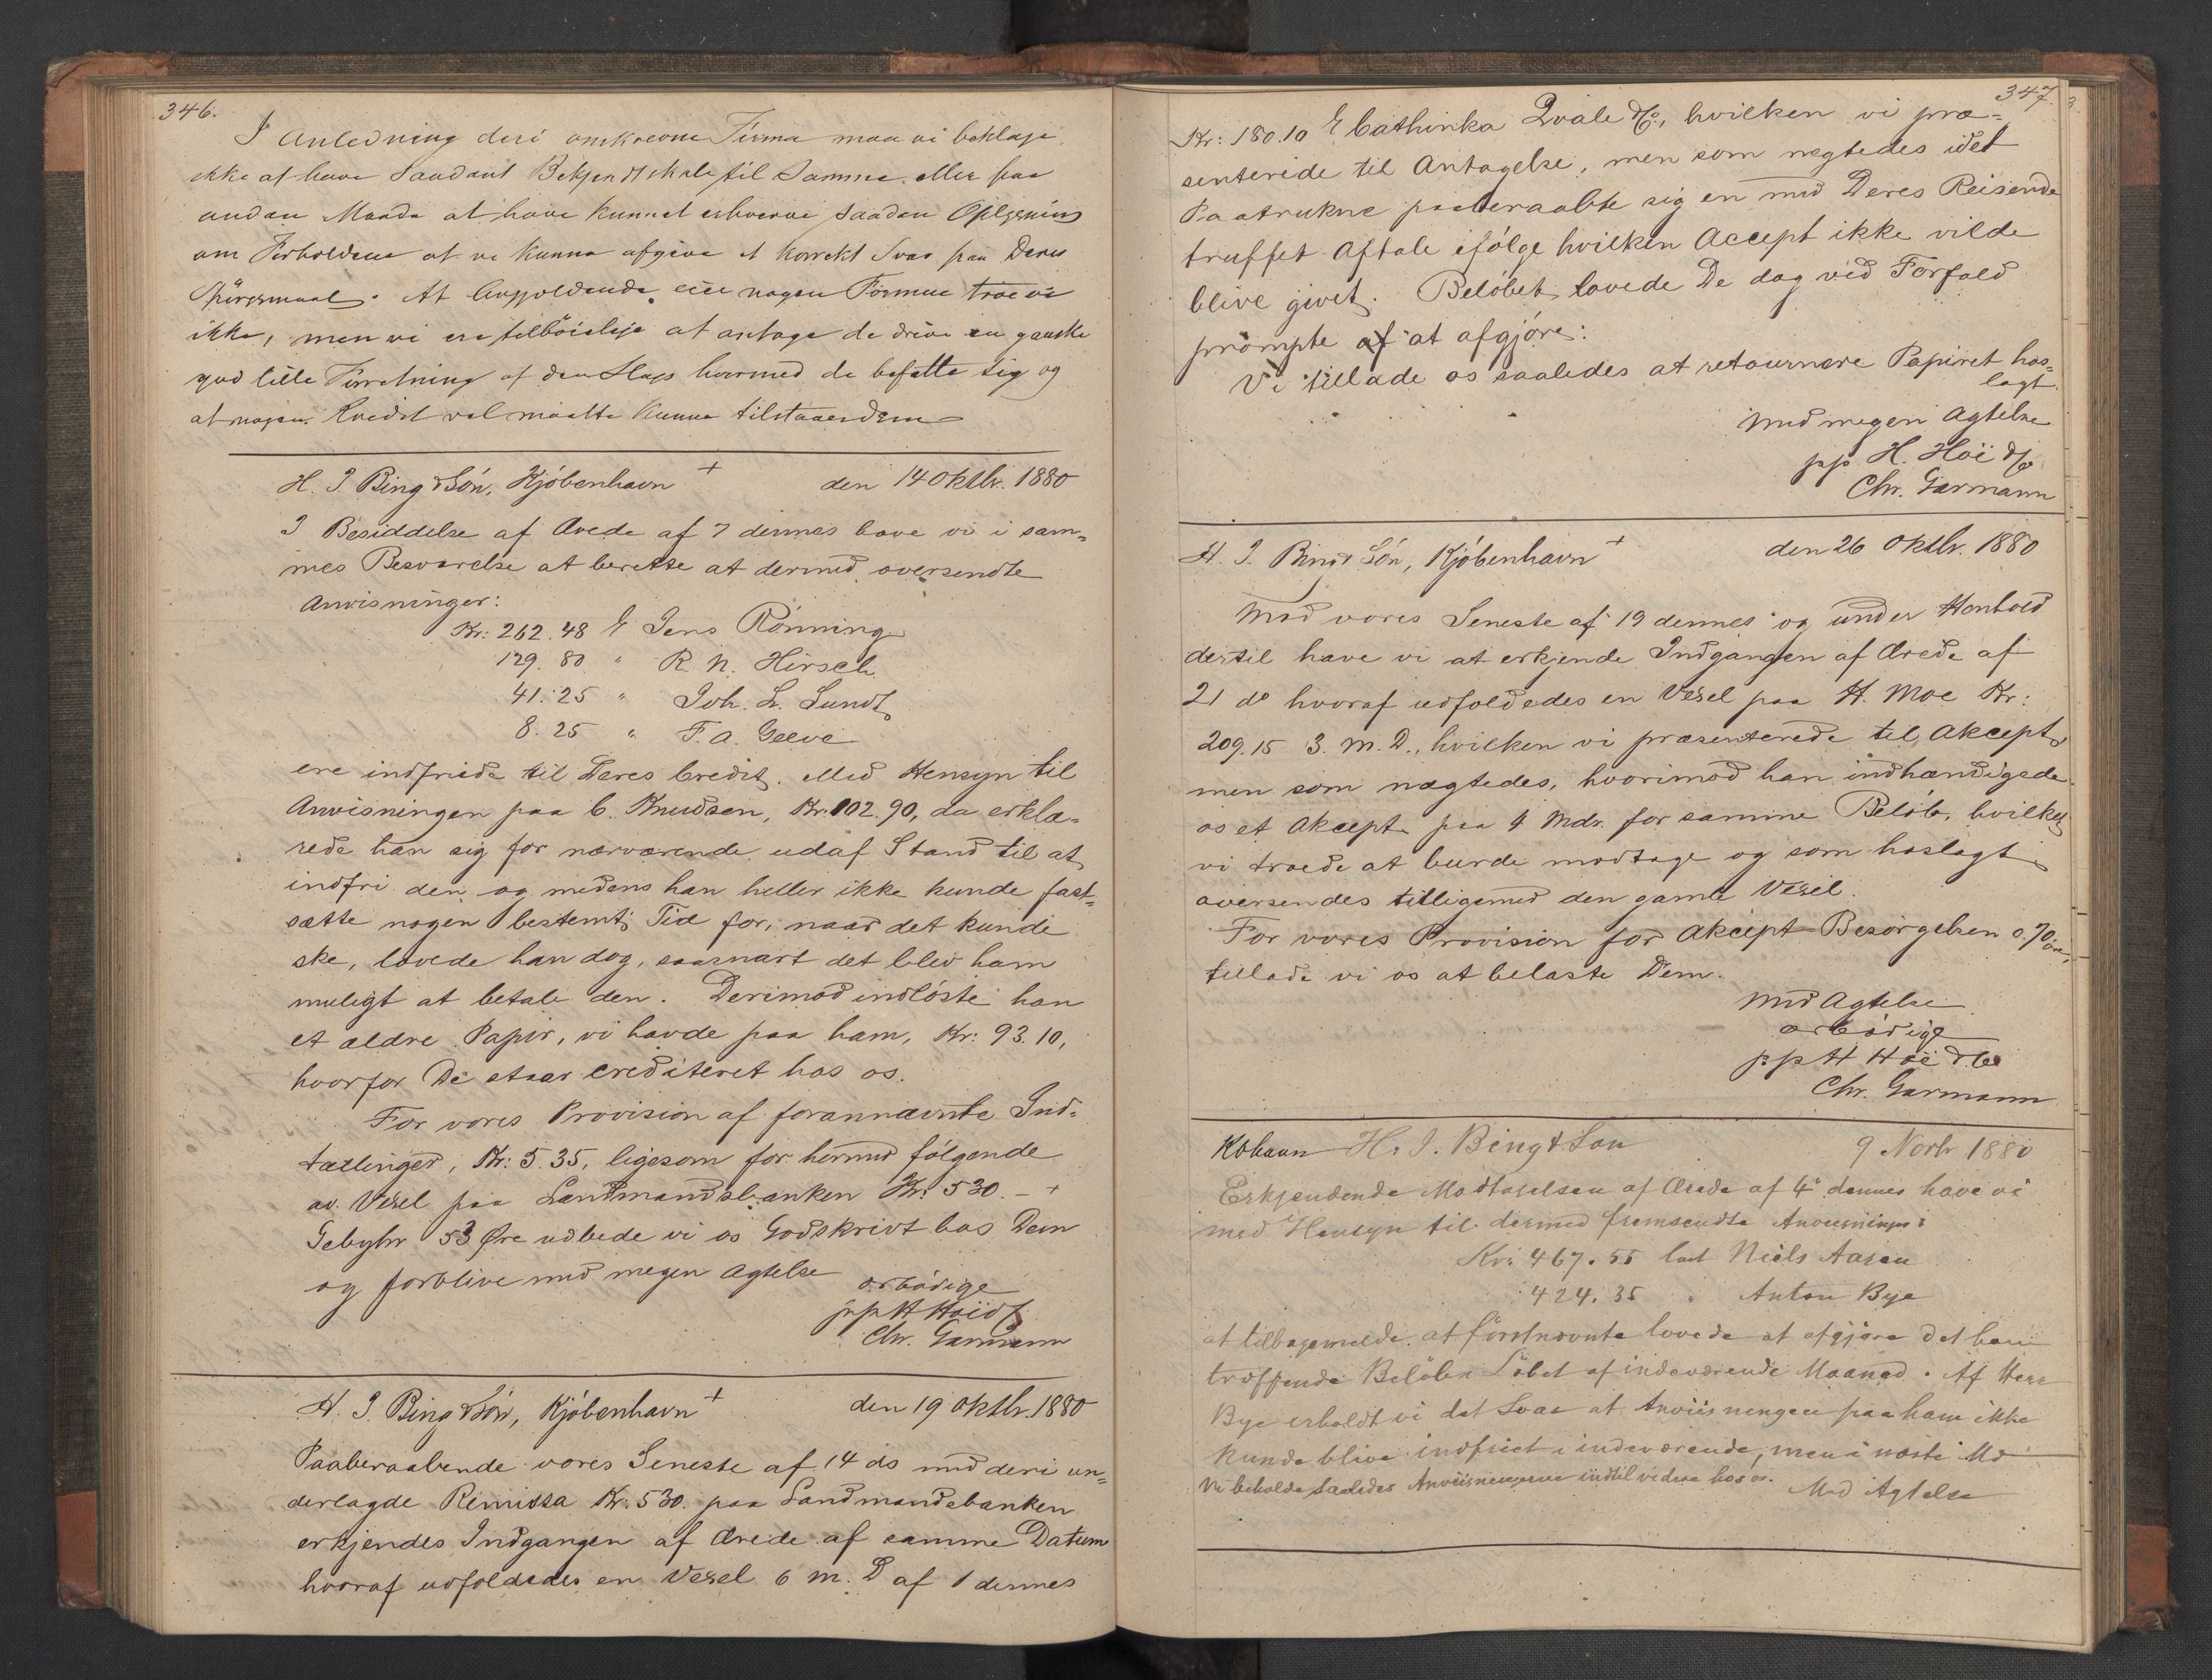 346.
I Anledning deri omskrevne Firma maa vi beklage
ikke at have saadant Bekjendtskab til Samme eller paa
anden Maade at have kunnet erhverve saadan Oplysning
om Forholdene at vi kunne afgive et korrekt Svar paa Deres
Spörgsmaal. At eie nogen Formue troe vi
ikke, men vi ere tilböielige at antage de drive en ganske
god lille Forretning af den Slags hvormed de befatte sig og
at nogen Kredit vel maatte kunne tilstaaes dem
H. J. Bing & Són, Kjóbenhavn + den 14 Oktbr. 1880
I Besiddelse af Ærede af 7 dennes have vi i sam=
mes Besvarelse at berette at dermed oversendte
Anvisninger:
Kr: 262.48 Jens Rönning
129.80 " R. N. Hirsch
41.25 " Joh. L. Lundt
8.25 " F. A. Geeve
ere indfriede til Deres Credit. Med Hensyn til
Anvisningen paa C. Knudsen, Kr. 102.90, da erklæ=
rede han sig for nærværende udaf Stand til at
indfri den og medens han heller ikke kunde fast=
sætte nogen bestemt Tid for, naar det kunde
ske, lovede han dog, saasnart det blev ham
muligt at betale den. Derimod indlöste han
et ældre Papir, vi havde paa ham, Kr: 93.10,
hvorfor De staar crediteret hos os.
For vores Provision af forannævnte Ind=
tællinger, Kr: 5.35, ligesom for hermed fölgende
av. Vexel paa Landmandsbanken Kr: 530.- +
Gebyhr 53 Øre udbede vi os Godskrivt hos Dem
og forblive med megen Agtelse
ærbödige
pp H Höi & Co
Chr. Garmann
H. J. Bing & Són, Kjóbenhavn + den 19 Oktbr. 1880
Paaberaabende vores Seneste af 14 ds med deri un=
derlagde Remissa Kr: 530. paa Landmandsbanken
erkjendes Indgangen af Ærede af samme Datum
hvoraf udfoldedes en Vexel 6 m. D af 1 dennes
347.
Kr: 180.10 Cathinka Qvale & Co:, hvilken vi præ=
senterede til Antagelse, men som nægtedes idet
Paatrukne paaberaabte sig en med Deres Reisende
truffet Aftale ifölge hvilken Accept ikke vilde
blive givet. Belöbet lovede De dog ved Forfald
prompte af at afgjöre:
Vi tillade os saaledes at retournere Papiret hos=
lagt.
Med megen Agtelse
pp H. Höi & Co
Chr. Garmann
H. J. Bing & Són, Kjóbenhavn + den 26 Oktbr. 1880
Med vores Seneste af 19 dennes og under Henhold
dertil have vi at erkjende Indgangen af Ærede af
21 do hvoraf udfoldedes en Vexel paa H. Moe Kr:
209.15 3. M. D., hvilken vi præsenterede til Akcept,
men som nægtedes, hvorimod han indhændigede
os et Akcept paa 4 Mdr. for samme Belöb, hvilket
vi troede at burde modtage og som hoslagt
oversendes tilligemed den gamle Vexel.
For vores Provision for Akcept-Besörgelsen 0.70 öre,
tillade vi os at belaste Dem.
Med Agtelse
ærbödige
pp H Höi & Co
Chr. Garmann
Kbhavn H. J. Bing & Son 9 Novbr 1880
Erkjendende Modtagelsen af Ærede af 4de dennes have vi
med Hensyn til dermed fremsendte Anvisninger:
Kr: 467.55 last Niels Aasen
424.35 " Anton Bye
at tilbagemelde at förstnævnte lovede at afgjöre det ham
træffende Belöb i Löbet af indeværende Maaned. Af Herr
Bye erholdt vi det Svar at Anviisningen paa ham ikke
kunde blive indfriet i indeværende, men i næste Md
Vi beholde saaledes Anviisningerne indtil videre hos os. Med Agtelse